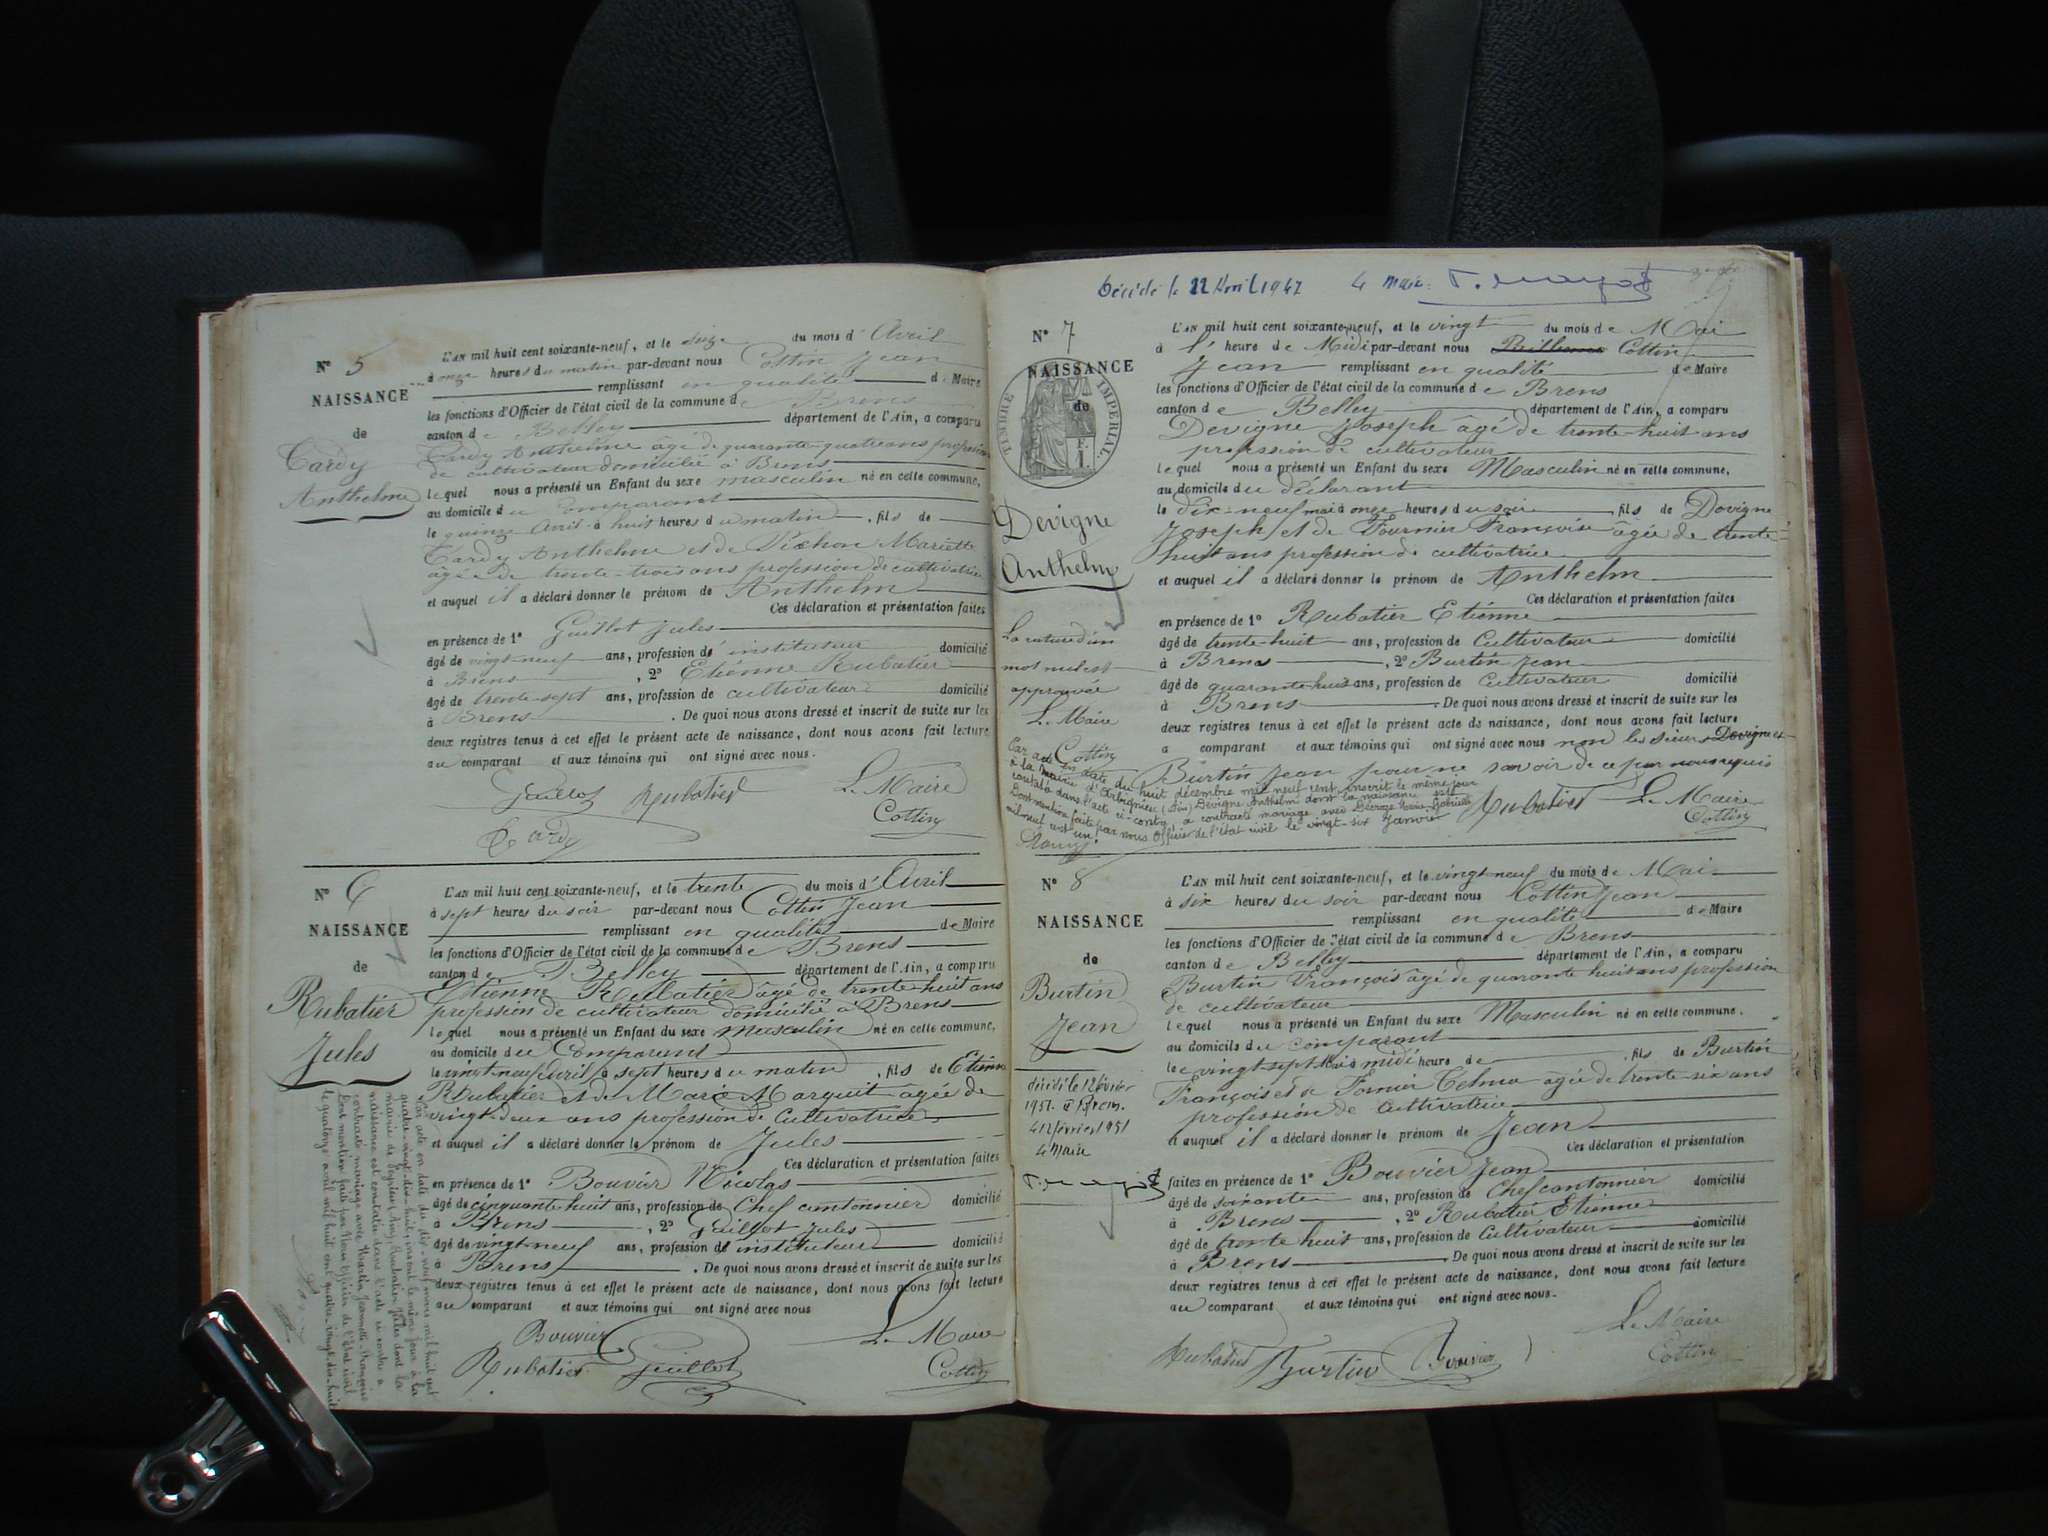 N° 5
NAISSANCE
de
Tardy
Anthelme
L'AN mil huit cent soixante-neuf, et le seize du mois d' Avril
à onze heures du matin par-devant nous Cottin Jean
remplissant en qualité de Maire
les fonctions d'Officier de l'état civil de la commune de Brens
canton de Belley département de l'Ain, a comparu
Tardy Anthelme âgé de quarante-quatre ans profession
de cultivateur domicilié à Brens
lequel nous a présenté un Enfant du sexe masculin né en cette commune,
au domicile du Comparant
le quinze Avril à huit heures du matin, fils de
Tardy Anthelme et de Pichon Mariette
âgée de trente-trois ans profession de cultivatrice
et auquel il a déclaré donner le prénom de Anthelm
Ces déclaration et présentation faites
en présence de 1° Guillot Jules
âgé de vingt-neuf ans, profession d' instituteur domicilié
à Brens, 2° Etienne Rubatier
âgé de trente-sept ans, profession de cultivateur domicilié
à Brens. De quoi nous avons dressé et inscrit de suite sur les
deux registres tenus à cet effet le présent acte de naissance, dont nous avons fait lecture
au comparant et aux témoins qui ont signé avec nous.
Guillot Rubatier Le Maire
Tardy Cottin
N° 6
NAISSANCE
de
Rubatier
Jules
L'AN mil huit cent soixante-neuf, et le trente du mois d' Avril
à sept heures du soir par-devant nous Cottin Jean
remplissant en qualité de Maire
les fonctions d'Officier de l'état civil de la commune de Brens
canton de Belley département de l'Ain, a comparu
Etienne Rubatier âgé de trente-huit ans
profession de cultivateur domicilié à Brens
lequel nous a présenté un Enfant du sexe masculin né en cette commune,
au domicile du Comparant
le vingt-neuf Avril à sept heures du matin, fils de Etienne
Rubatier et de Marie Marguit âgée de
vingt-deux ans profession de Cultivatrice
et auquel il a déclaré donner le prénom de Jules
Ces déclaration et présentation faites
en présence de 1° Bouvier Nicolas
âgé de cinquante-huit ans, profession de Chef cantonnier domicilié
à Brens, 2° Guillot Jules
âgé de vingt-neuf ans, profession d' instituteur domicilié
à Brens. De quoi nous avons dressé et inscrit de suite sur les
deux registres tenus à cet effet le présent acte de naissance, dont nous avons fait lecture
au comparant et aux témoins qui ont signé avec nous
Bouvier Le Maire
Rubatier Guillot Cottin
Par acte en date du dix-neuf mars mil huit cent
quatre-vingt-dix-huit, inscrit le même jour à la
mairie de Peyrieu (Ain) Rubatier Jules dont la
naissance est constatée dans l'acte ci-contre a
contracté mariage avec Martin Jeannette Françoise
Dont mention faite par Nous Officier de l'Etat civil
le quatorze avril mil huit cent quatre-vingt-dix-huit
Décédé le 22 Avril 1947 Le Maire:
N° 7
NAISSANCE
de
TIMBRE IMPÉRIAL
Devigne
Anthelm
La rature d'un
mot nul est
approuvée
Le Maire
Cottin
L'AN mil huit cent soixante-neuf, et le vingt du mois de Mai
à l' heure de Midi par-devant nous Cottin
Jean remplissant en qualité de Maire
les fonctions d'Officier de l'état civil de la commune de Brens
canton de Belley département de l'Ain, a comparu
Devigne Joseph âgé de trente-huit ans
profession de cultivateur
lequel nous a présenté un Enfant du sexe Masculin né en cette commune,
au domicile du déclarant
le Dix-neuf mai à onze heures du soir fils de Devigne
Joseph et de Fournier Françoise âgée de trente-
huit ans profession de cultivatrice
et auquel il a déclaré donner le prénom de Anthelm
Ces déclaration et présentation faites
en présence de 1° Rubatier Etienne
âgé de trente-huit ans, profession de Cultivateur domicilié
à Brens, 2° Burtin Jean
âgé de quarante-huit ans, profession de Cultivateur domicilié
à Brens. De quoi nous avons dressé et inscrit de suite sur les
deux registres tenus à cet effet le présent acte de naissance, dont nous avons fait lecture
a comparant et aux témoins qui ont signé avec nous non les sieurs Devigne et
Burtin Jean pour ne savoir de ce par nous requis
Rubatier Le Maire
Cottin
Par acte en date du huit décembre mil neuf cent, inscrit le même jour
à la mairie d'Arbignieu (Ain) Devigne Anthelm dont la naissance est
constatée dans l'acte ci-contre, a contracté mariage avec
Dont mention faite par nous Officier de l'état civil le vingt-six Janvier
mil neuf cent un.
N° 8
NAISSANCE
de
Burtin
Jean
décédé le 12 février
1951 à Brens.
le 12 février 1951
Le Maire
L'AN mil huit cent soixante-neuf, et le vingt-neuf du mois de Mai
à six heures du soir par-devant nous Cottin Jean
remplissant en qualité de Maire
les fonctions d'Officier de l'état civil de la commune de Brens
canton de Belley département de l'Ain, a comparu
Burtin François âgé de quarante huit ans profession
de cultivateur
lequel nous a présenté un Enfant du sexe Masculin né en cette commune.
au domicile du comparant
le vingt-sept Mai à midi heure de, fils de Burtin
François et de Fournier Telma âgée de trente-six ans
profession de Cultivatrice
et auquel il a déclaré donner le prénom de Jean
Ces déclaration et présentation
faites en présence de 1° Bouvier Jean
âgé de soixante ans, profession de Chef cantonnier domicilié
à Brens, 2° Rubatier Etienne
âgé de trente huit ans, profession de Cultivateur domicilié
à Brens. De quoi nous avons dressé et inscrit de suite sur les
deux registres tenus à cet effet le présent acte de naissance, dont nous avons fait lecture
au comparant et aux témoins qui ont signé avec nous.
Le Maire
Rubatier Burtin Bouvier Cottin